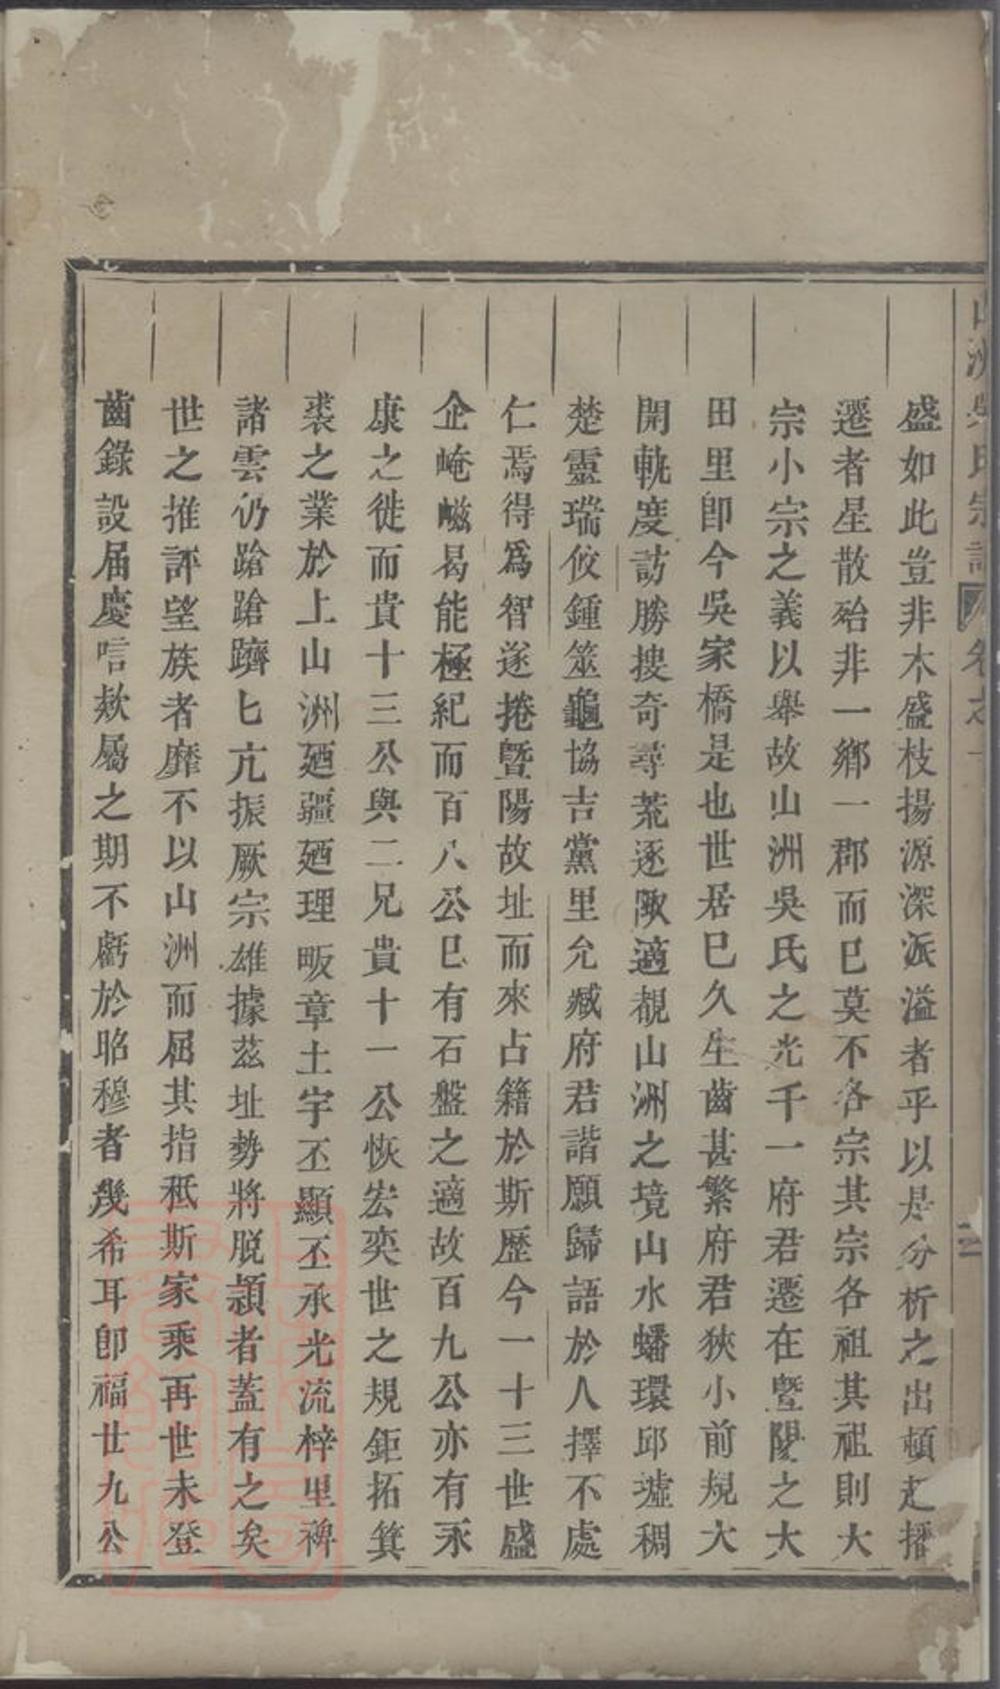 山洲吳氏宗譜 卷之一 二
盛如此豈非木盛枝揚源深派溢者乎以是分析之出頓起播
遷者星散殆非一鄉一郡而已莫不各宗其宗各祖其祖則大
宗小宗之義以舉故山洲吳氏之光千一府君遷在暨陽之大
田里卽今吳家橋是也世居巳久生齒甚繁府君狹小前規大
開軌度訪勝搜奇尋荒逐陬適覩山洲之境山水蟠環邱墟稠
楚靈瑞佼鍾筮龜協吉黨里允臧府君諧願歸語於人擇不處
仁焉得爲智遂捲暨陽故址而來占籍於斯歷今一十三世盛
企崦嵫曷能極紀而百八公巳有石盤之適故百九公亦有永
康之徙而貴十三公與二兄貴十一公恢宏奕世之規鉅拓箕
裘之業於上山洲廼疆廼理畈章土宇丕顯丕承光流梓里裨
諸雲仍蹌蹌躋匕亢振厥宗雄據茲址勢將脫穎者蓋有之矣
世之推評望族者靡不以山洲而屈其指秪斯家乘再世未登
齒錄設届慶唁欵屬之期不虧於昭穆者幾希耳卽福廿九公